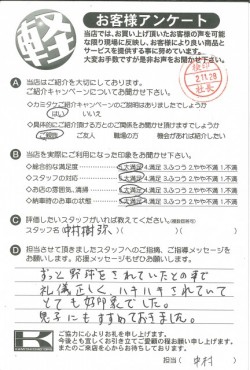 軽
お客様アンケート
当店では、お買い上げ頂いたお客様の声を可能
な限り現場に反映し、お客様により良い商品と
サービスを提供する事に努めています。
大変お手数ですが是非お声をお聞かせ下さい。
2.11.28
社長
A 当店はご紹介を大切にしております。
ご紹介キャンペーンについてお聞かせ下さい。
・カミタケご紹介キャンペーンのご説明はありましたでしょうか
はい いいえ
・具体的にご紹介頂ける方とのご関係をお聞かせ頂けますでしょうか
ご親族 ご友人 職場の方 機会があれば紹介したい
B 当店を実際にご利用になった印象をお聞かせ下さい。
◇総合的な満足度 5.大満足 4.満足 3.ふつう 2.やや不満 1.不満
◇スタッフの対応 5.大満足 4.満足 3.ふつう 2.やや不満 1.不満
◇お店の雰囲気、清掃 5.大満足 4.満足 3.ふつう 2.やや不満 1.不満
◇納車時のお車の状態 5.大満足 4.満足 3.ふつう 2.やや不満 1.不満
C 評価したいスタッフがいれば教えてください。(複数回答可)
スタッフ名(中村樹弥、)( )( )
D 担当させて頂きましたスタッフへのご指摘、ご指導メッセージを
お願いします。応援メッセージもぜひお願いします。
ずっと野球をされていたとの事で
礼儀正しく、ハキハキされていて
とても好印象でした。
息子にもすすめておきました。
K
ご協力に心よりお礼を申し上げます。
今後とも宜しくお引き立てご愛顧の程お願い申し上げます。
またのご来店を心からお待ちしております。
担当( 中村 )